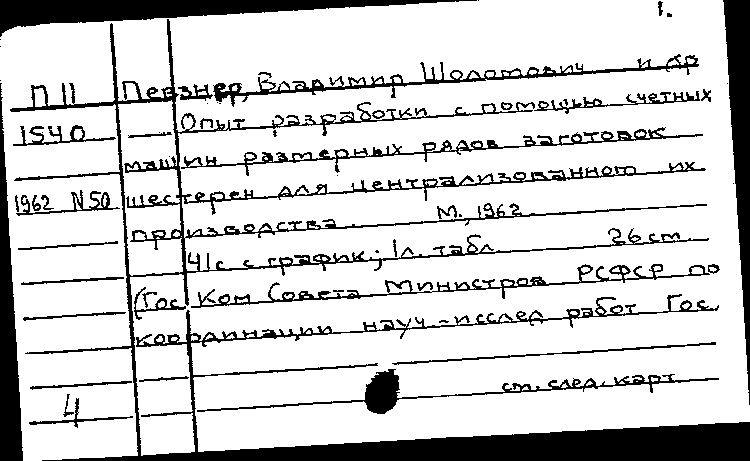 1.
П 11 Певзнер, Владимир Шоломович и др
1540 Опыт разработки с помощью счетных
машин размерных рядов заготовок
1962 N50 шестерен для централизованного их
производства. М., 1962
41с с график; 1л. табл 26 см
(Гос Ком Совета Министров РСФСР по
координации науч-исслед работ Гос.
см. след. карт
4